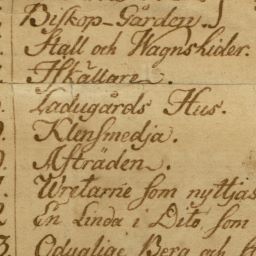 Biskop-Gården.
Stall och Wagnshider.
Iskällare.
Ladugårds Hus.
Klensmedja.
Afträden.
Wretarne som nyttjas
En Linda i Dito, som
Oduglige Berg och